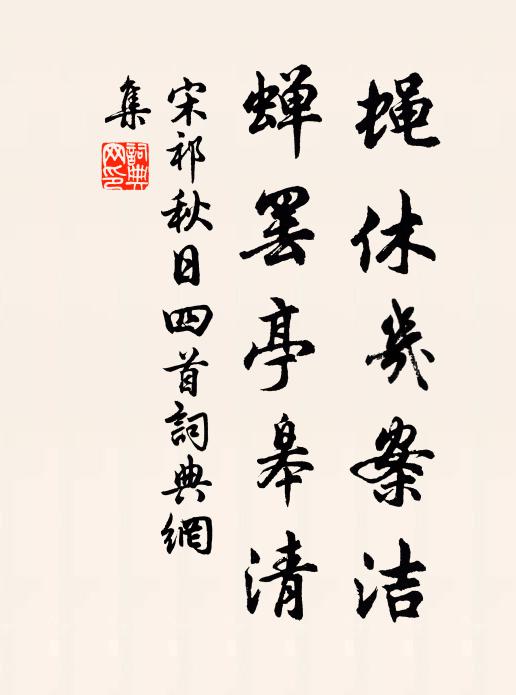 蝇休幾案洁
蝉罢亭皋清
宋祁秋日四首詞典網
集
詞典
网印